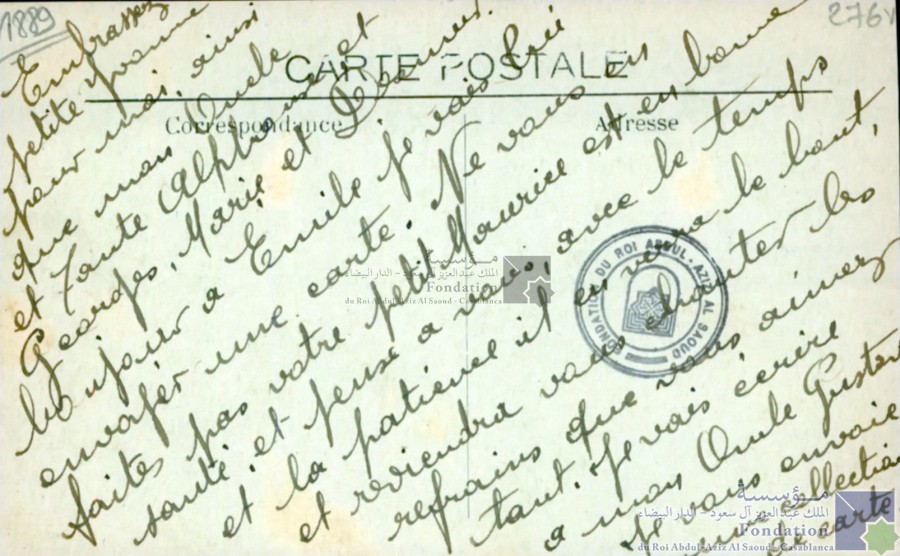 1889
276v
CARTE POSTALE
Correspondance
Adresse
Embrassez
petite Yvonne
pour moi, ainsi
que mon Oncle
et Tante Alphonse et
Georges, Marie et
bonjour a Emile je vais lui
envoyer une carte. Ne vous en
faites pas votre petit Maurice est en bonne
santé, et pense a vous, avec le temps
et la patience il en verra le bout,
et reviendra vous chanter les
refrains que vous aimez
tant. Je vais ecrire
a mon Oncle Gustave
Je vous envoie
une collection
de carte
FONDATION DU ROI ABDUL-AZIZ AL SAOUD
مؤسسة
الملك عبدالعزيز آل سعود - الدار البيضاء
Fondation
du Roi Abdul-Aziz Al Saoud - Casablanca
مؤسسة
الملك عبدالعزيز آل سعود - الدار البيضاء
Fondation
du Roi Abdul-Aziz Al Saoud - Casablanca